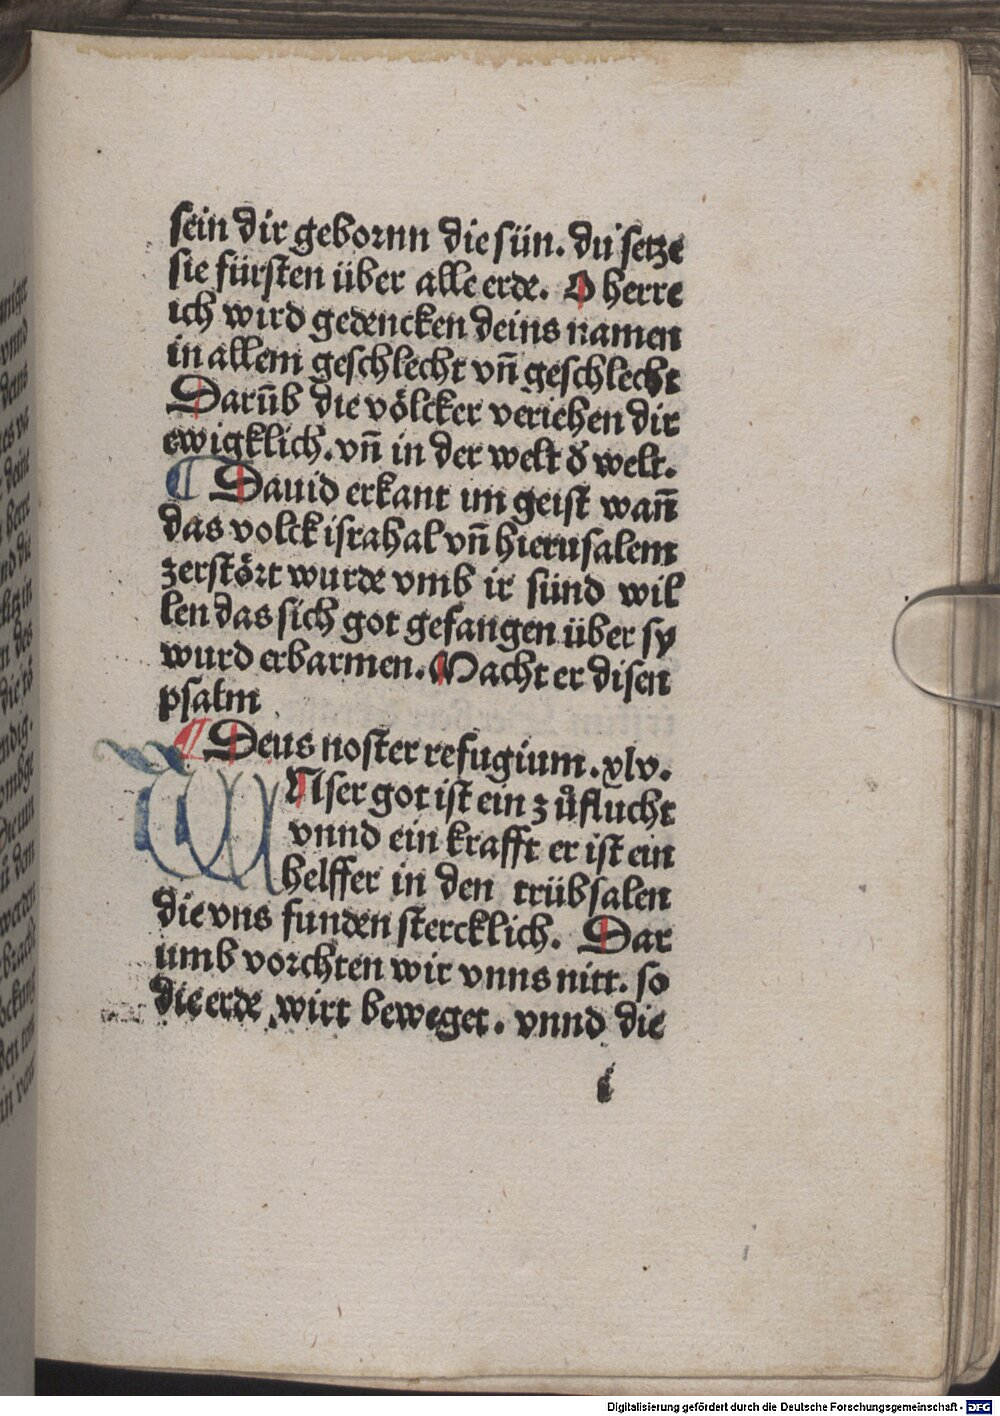 sein dir gebornn die sün. du setze
sie fürsten über alle erde. O herre
ich wird gedencken deins namen
in allem geschlecht vn̄ geschlecht
Darūb die völcker veriehen dir
ewigklich. vn̄ in der welt d̛ welt.
¶ Dauid erkant im geist wan̄
das volck israhal vn̄ hierusalem
zerstört wurde vmb ir sünd wil
len das sich got gefangen über sy
wurd erbarmen. Macht er disen
psalm
¶ Deus noster refugium. xlv.
VNser got ist ein zůflucht
vnnd ein krafft er ist ein
helffer in den trübsalen
die vns funden stercklich. Dar
umb vorchten wir vnns nitt. so
die erde wirt beweget. vnnd die
i
Digitalisierung gefördert durch die Deutsche Forschungsgemeinschaft - DFG